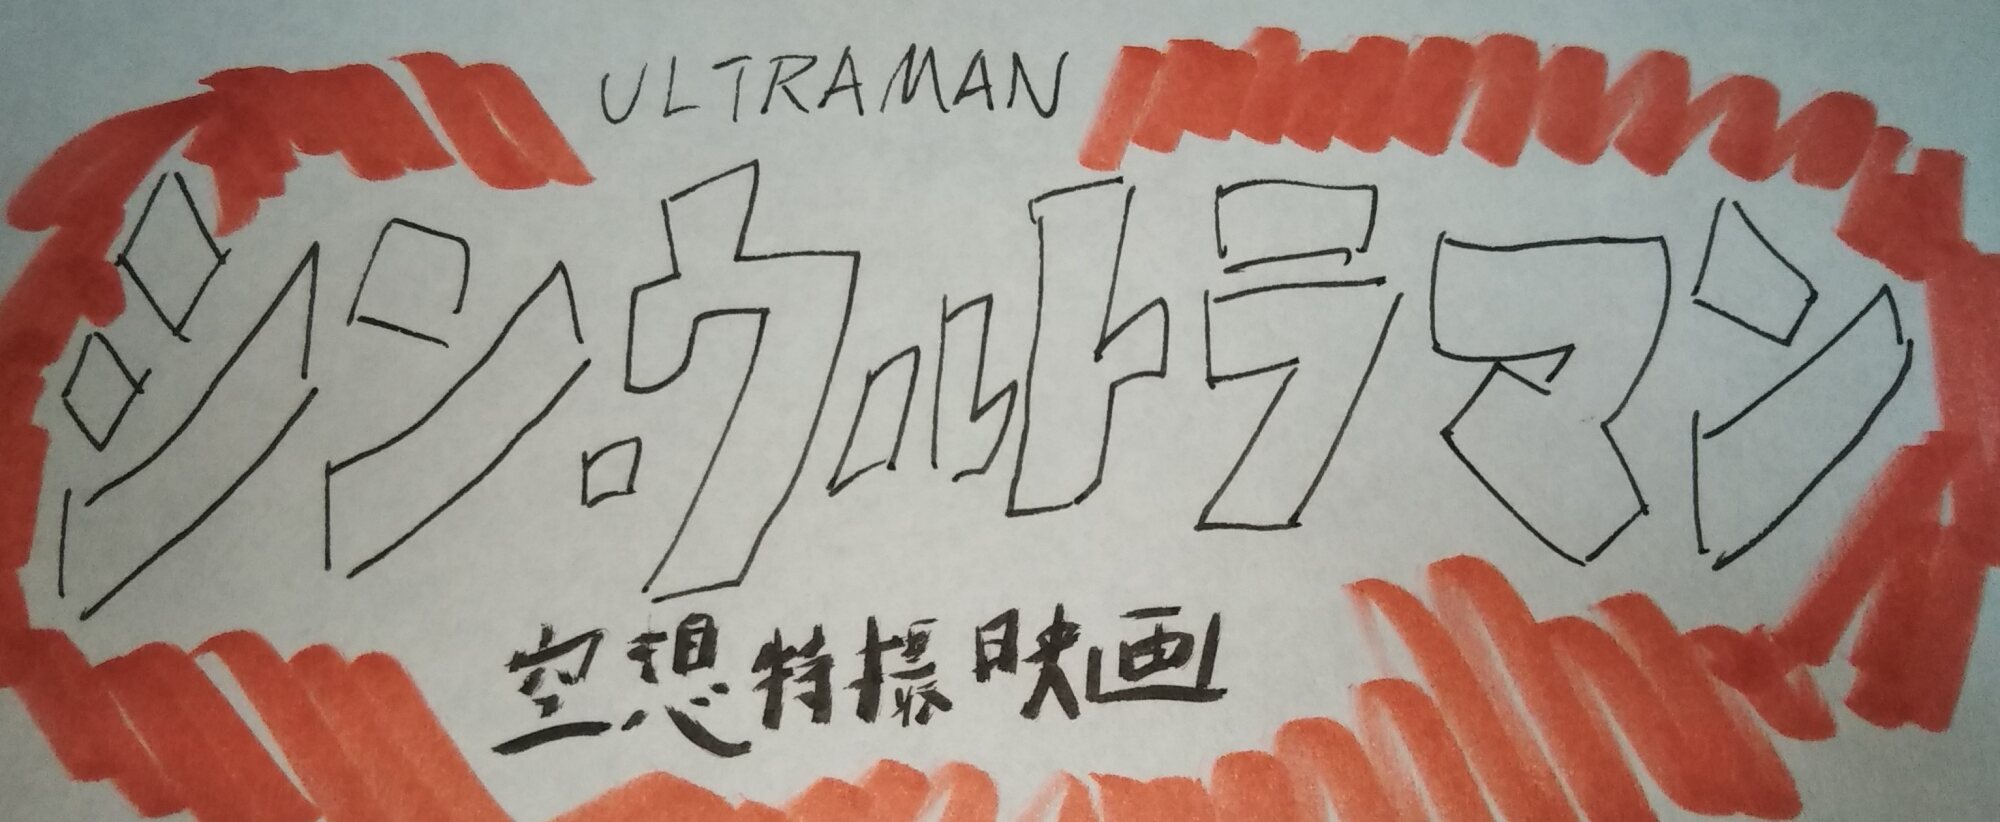 ULTRAMAN
シン・ウルトラマン
空想特撮映画